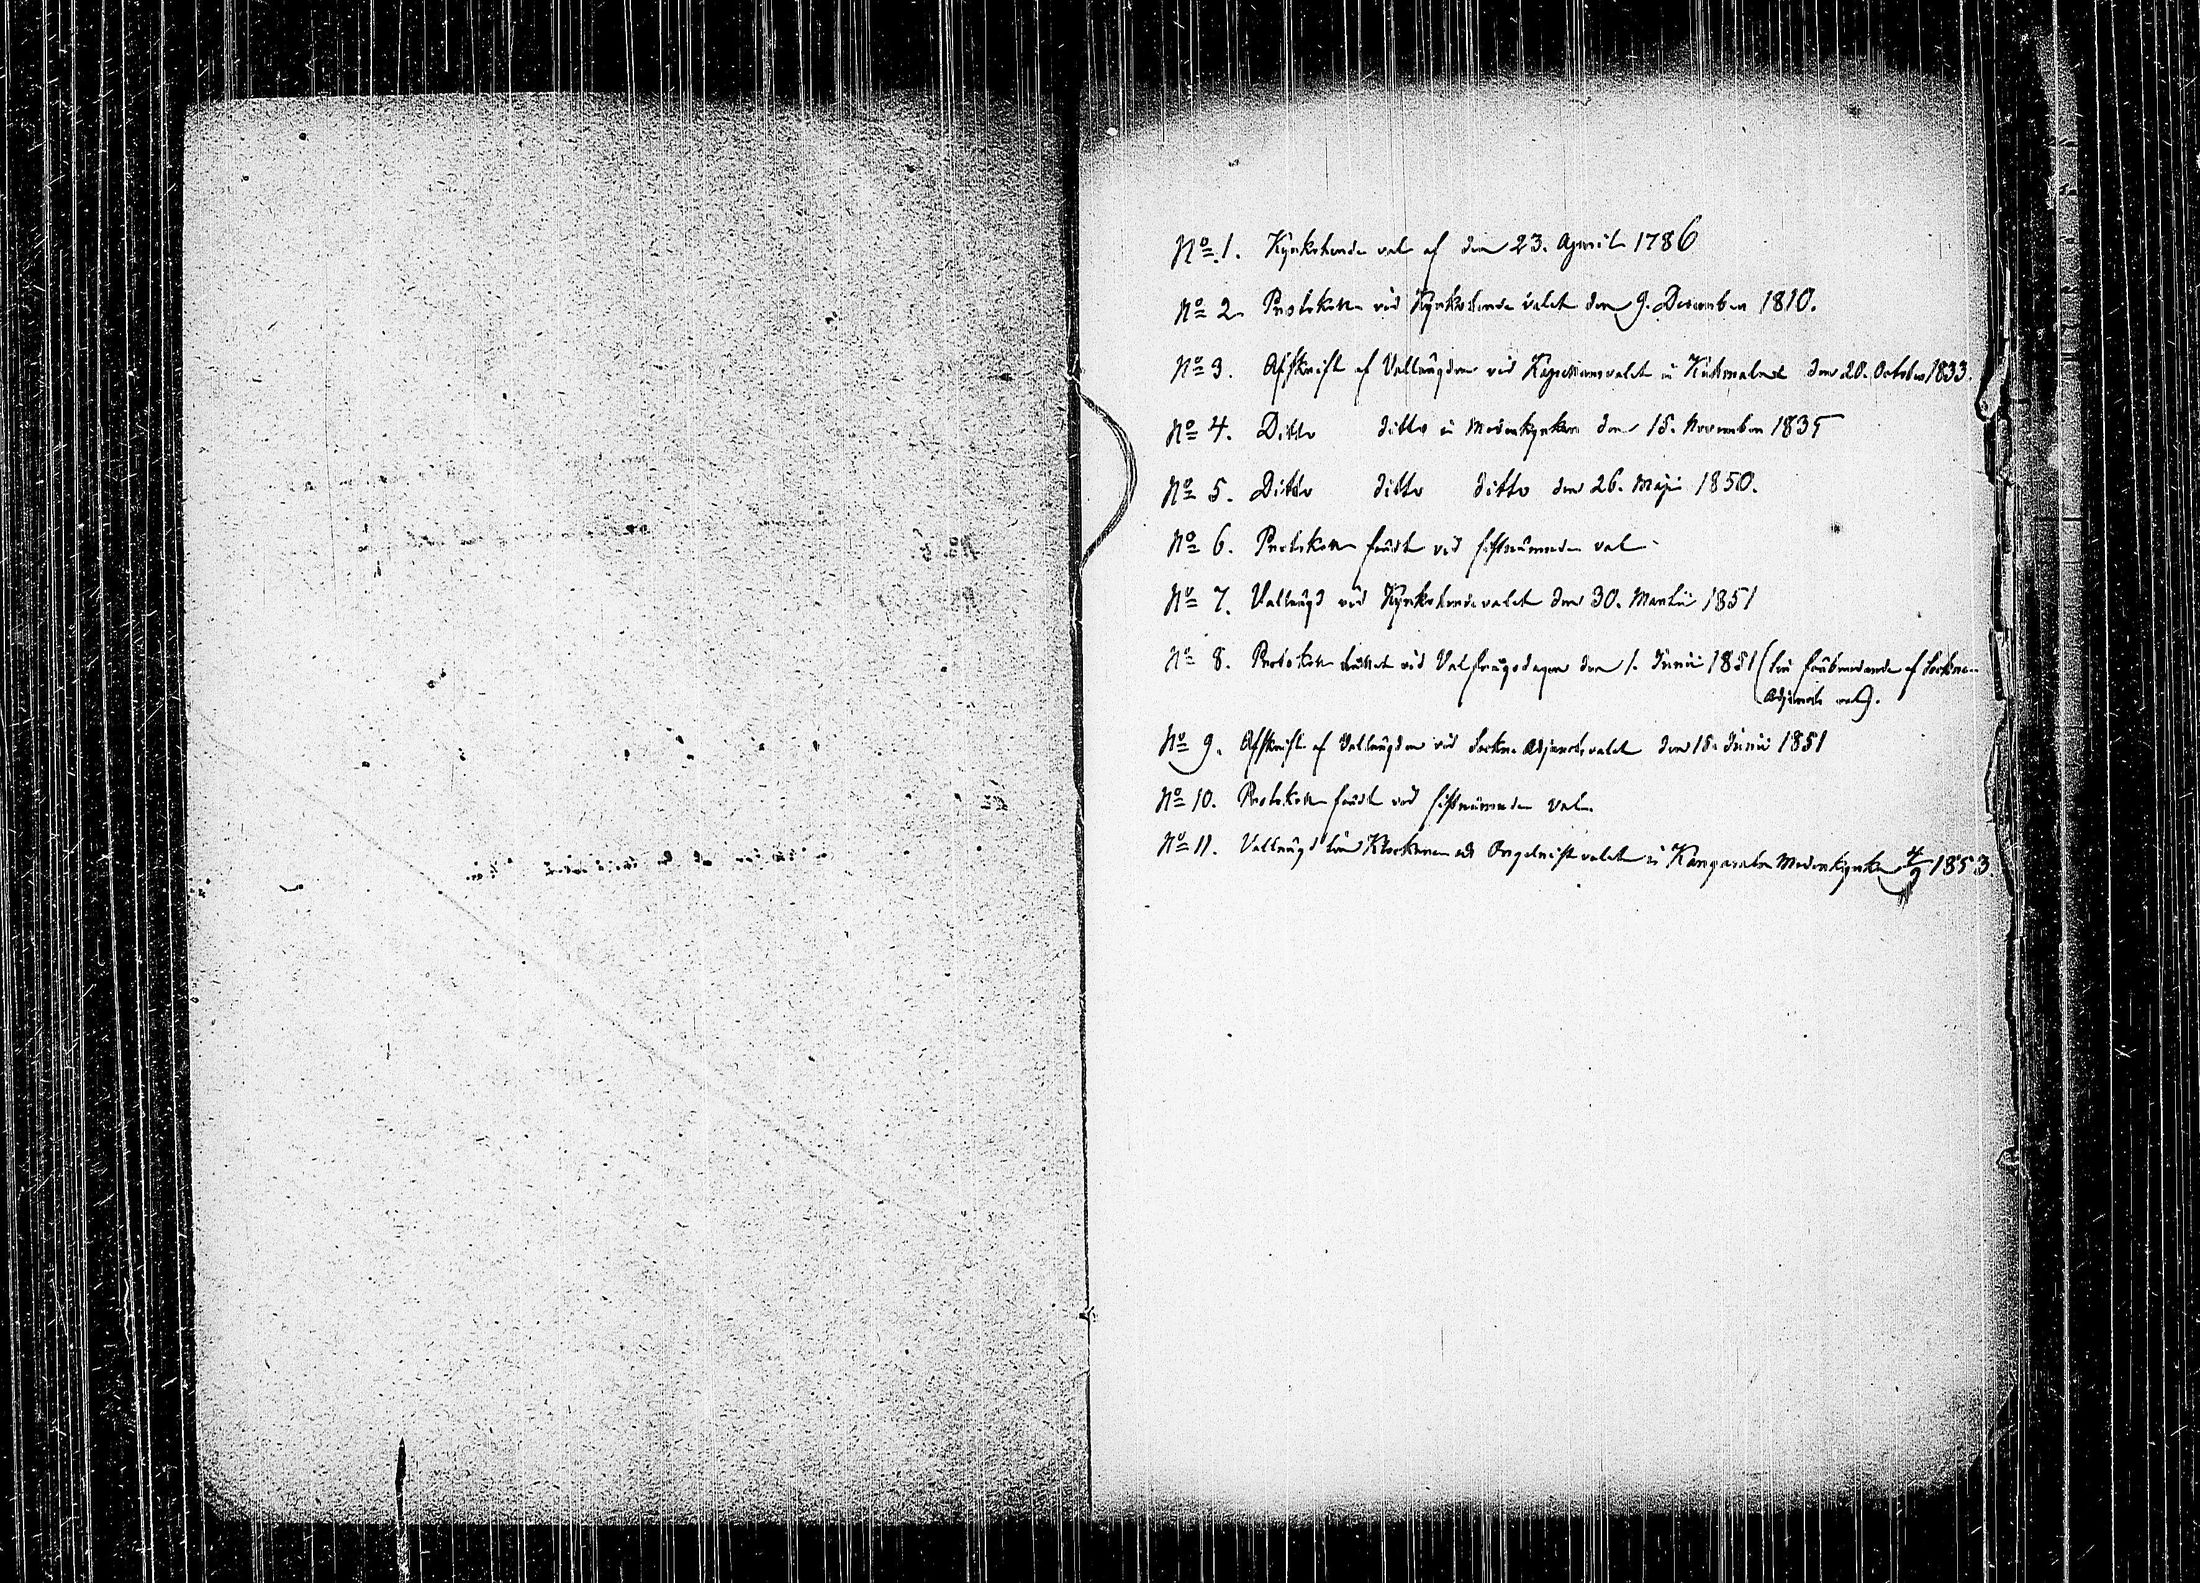 No 1. Kyrkoherde val af den 23. April 1786
No 2. Protokoll vid Kyrkoherde valet den 9. December 1810.
No 3. Afskrift af Vallängden vid Kapellansvalet i Kuhmalaks den 20. October 1833.
No 4. Ditto ditto i Moderkyrkan den 15. November 1835
No 5. Ditto ditto ditto den 26. Maji 1850.
No 6. Protokoll fördt vid sistnämnde val
No 7. Vallängd vid Kyrkoherdevalet den 30. Martii 1851
No 8. Protokoll hållet vid Valfrågodagen den 1. Junii 1851 (för förberedande af Sockne-
Adjuncts val).
No 9. Afskrift af Vallängden vid Sockne Adjunctsvalet den 15. Junii 1851
No 10. Protokoll fördt vid sistnämnde val.
No 11. Vallängd för Klockare och Orgelnist valet i Kangasala Moderkyrka 4/9 1853.